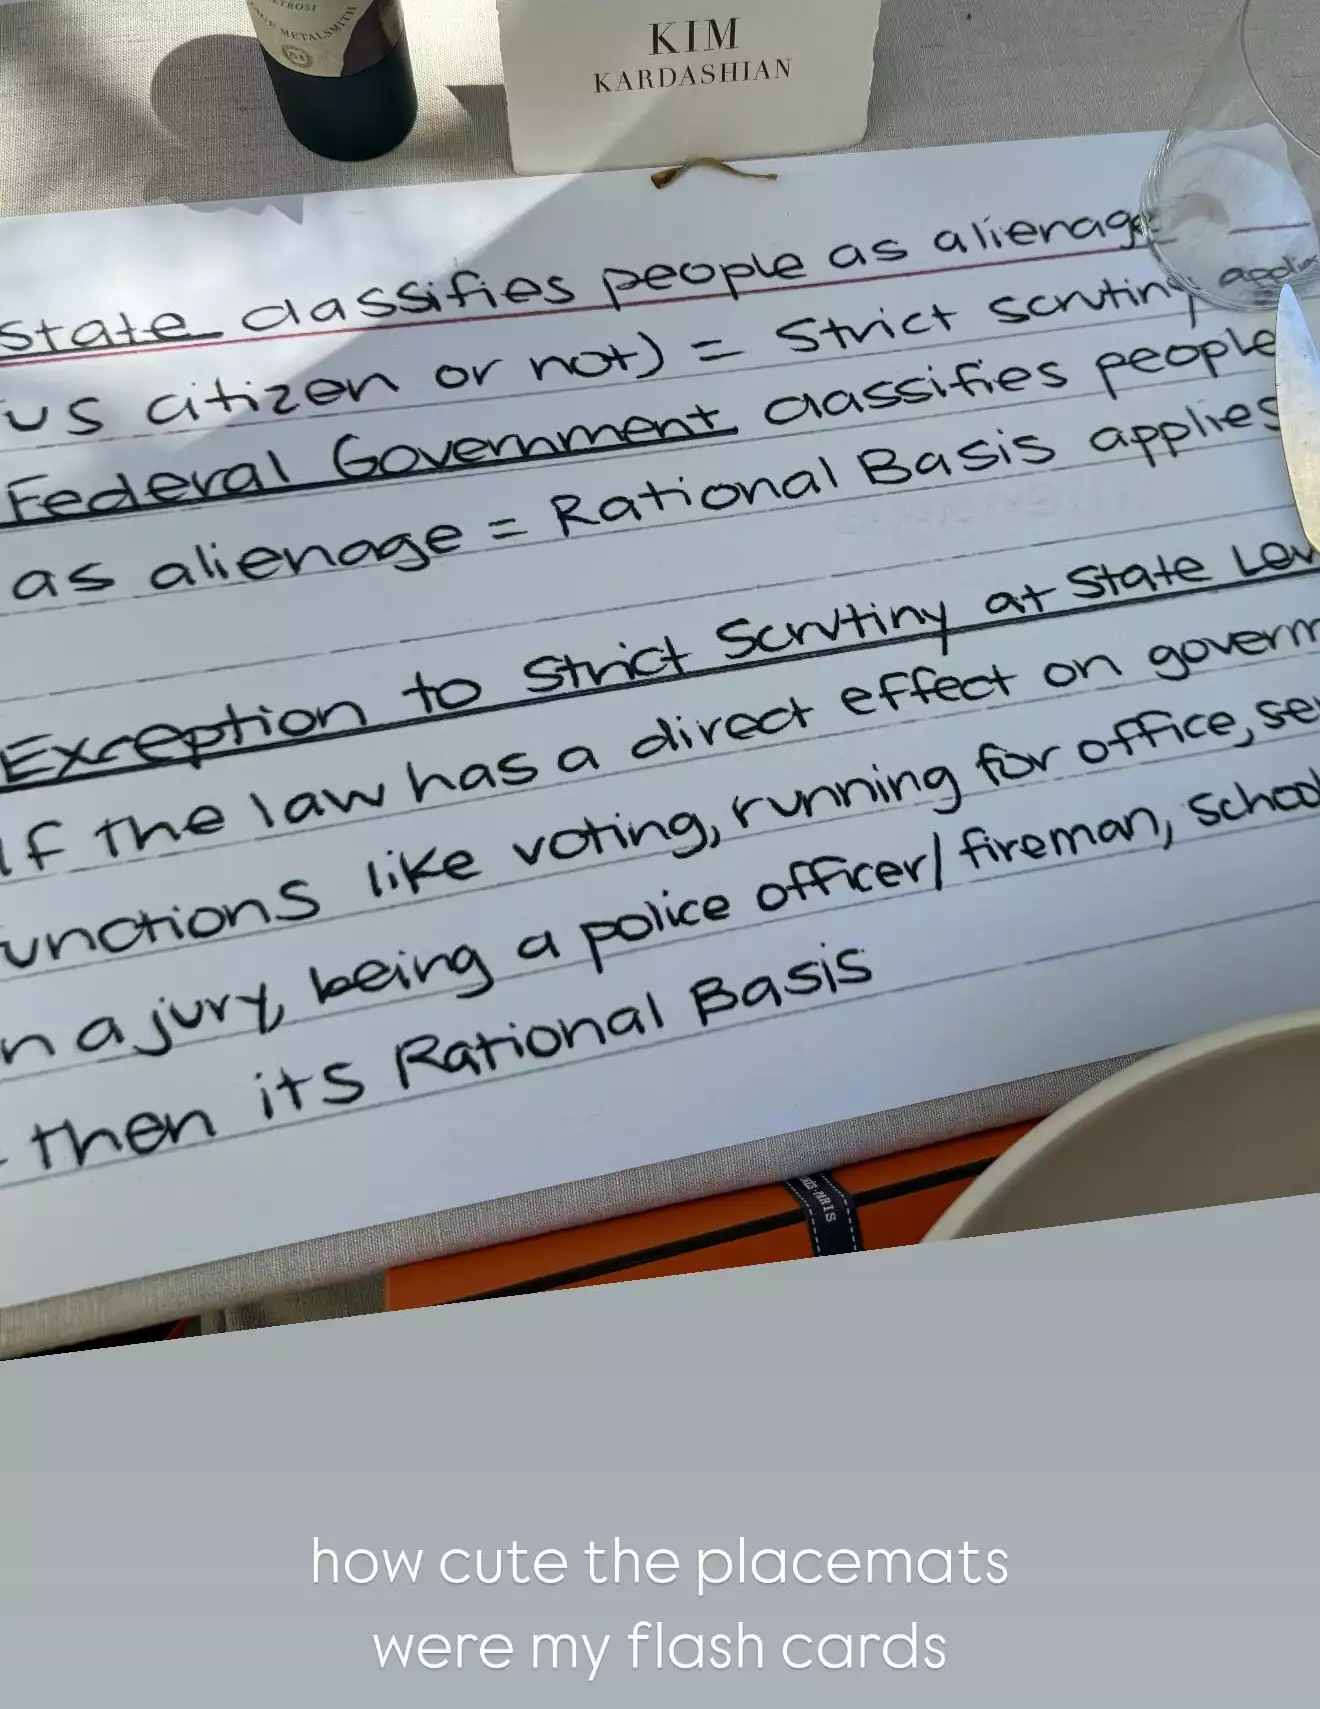 METALSMITH
KIM
KARDASHIAN
State classifies people as alienage
US citizen or not) = Strict scrutiny
Federal Government classifies people
as alienage = Rational Basis applies
Exception to Strict Scrutiny at State
If the law has a direct effect on
like voting, running for office,
a jury, being a police officer/fireman, school
then its Rational Basis
how cute the placemats
were my flash cards